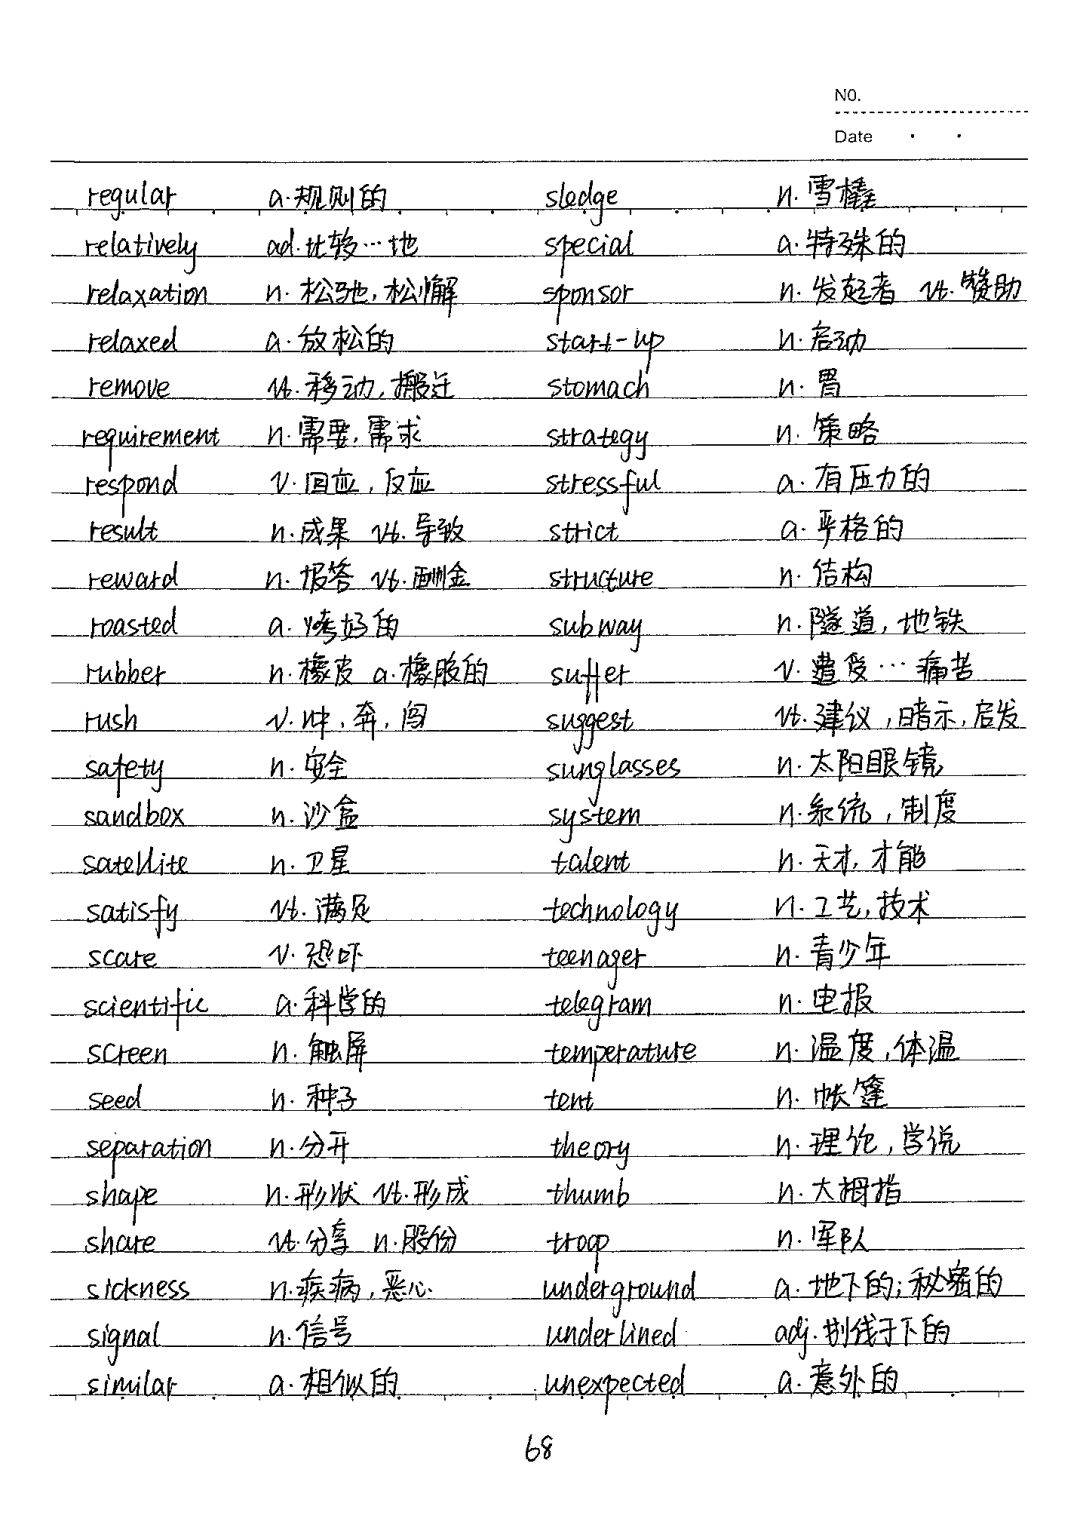 NO.
Date
regular a.规则的 sledge n.雪橇
relatively ad.比较…地 special a.特殊的
relaxation n.松弛,松懈 sponsor n.发起者 vt.赞助
relaxed a.放松的 start-up n.启动
remove vt.移动,搬迁 stomach n.胃
requirement n.需要,需求 strategy n.策略
respond v.回应,反应 stressful a.有压力的
result n.成果 vt.导致 strict a.严格的
reward n.报答 vt.酬金 structure n.结构
roasted a.烤好的 subway n.隧道,地铁
rubber n.橡皮 a.橡胶的 suffer v.遭受…痛苦
rush v.冲,奔,闯 suggest vt.建议,暗示,启发
safety n.安全 sunglasses n.太阳眼镜
sandbox n.沙盒 system n.系统,制度
satellite n.卫星 talent n.天才,才能
satisfy vt.满足 technology n.工艺,技术
scare v.恐吓 teenager n.青少年
scientific a.科学的 telegram n.电报
screen n.触屏 temperature n.温度,体温
seed n.种子 tent n.帐篷
separation n.分开 theory n.理论,学说
shape n.形状 vt.形成 thumb n.大拇指
share vt.分享 n.股份 troop n.军队
sickness n.疾病,恶心 underground a.地下的;秘密的
signal n.信号 underlined adj.划线于下的
similar a.相似的 unexpected a.意外的
68